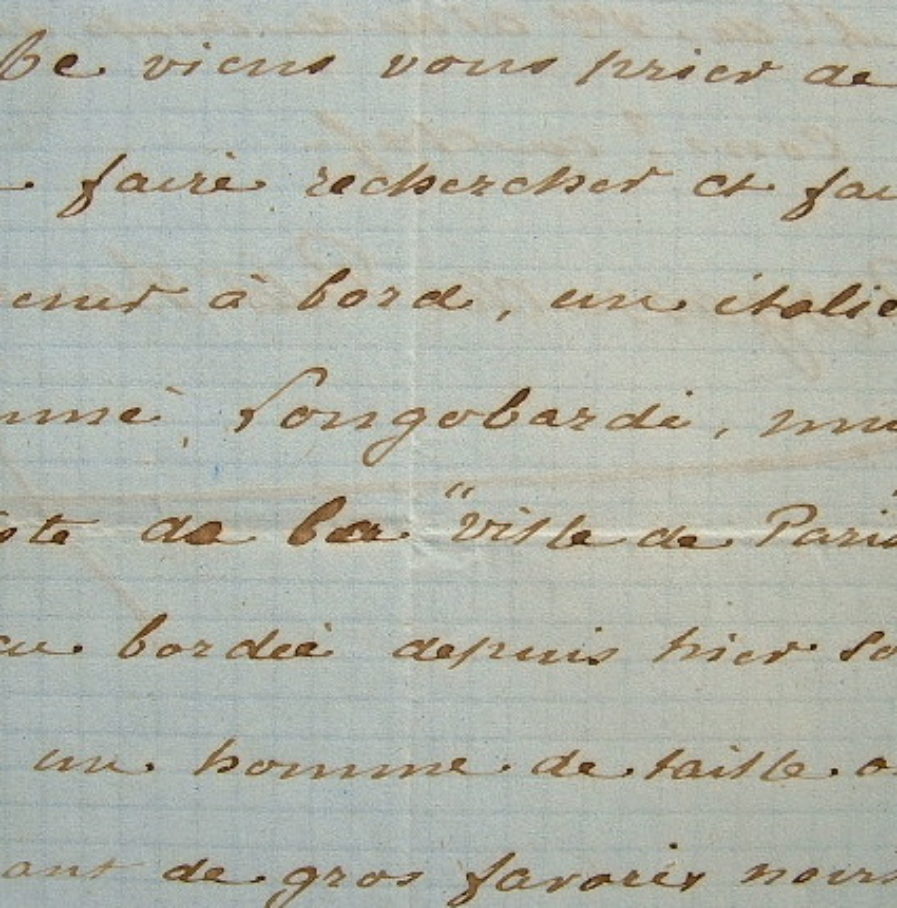 Je viens vous prier de
faire rechercher et fai
ener à bord, un italie
mmé, Longobardi, mu
ste de la "ville de Paris"
en bordée depuis hier so
un homme de taille
ant de gros favoris noirs